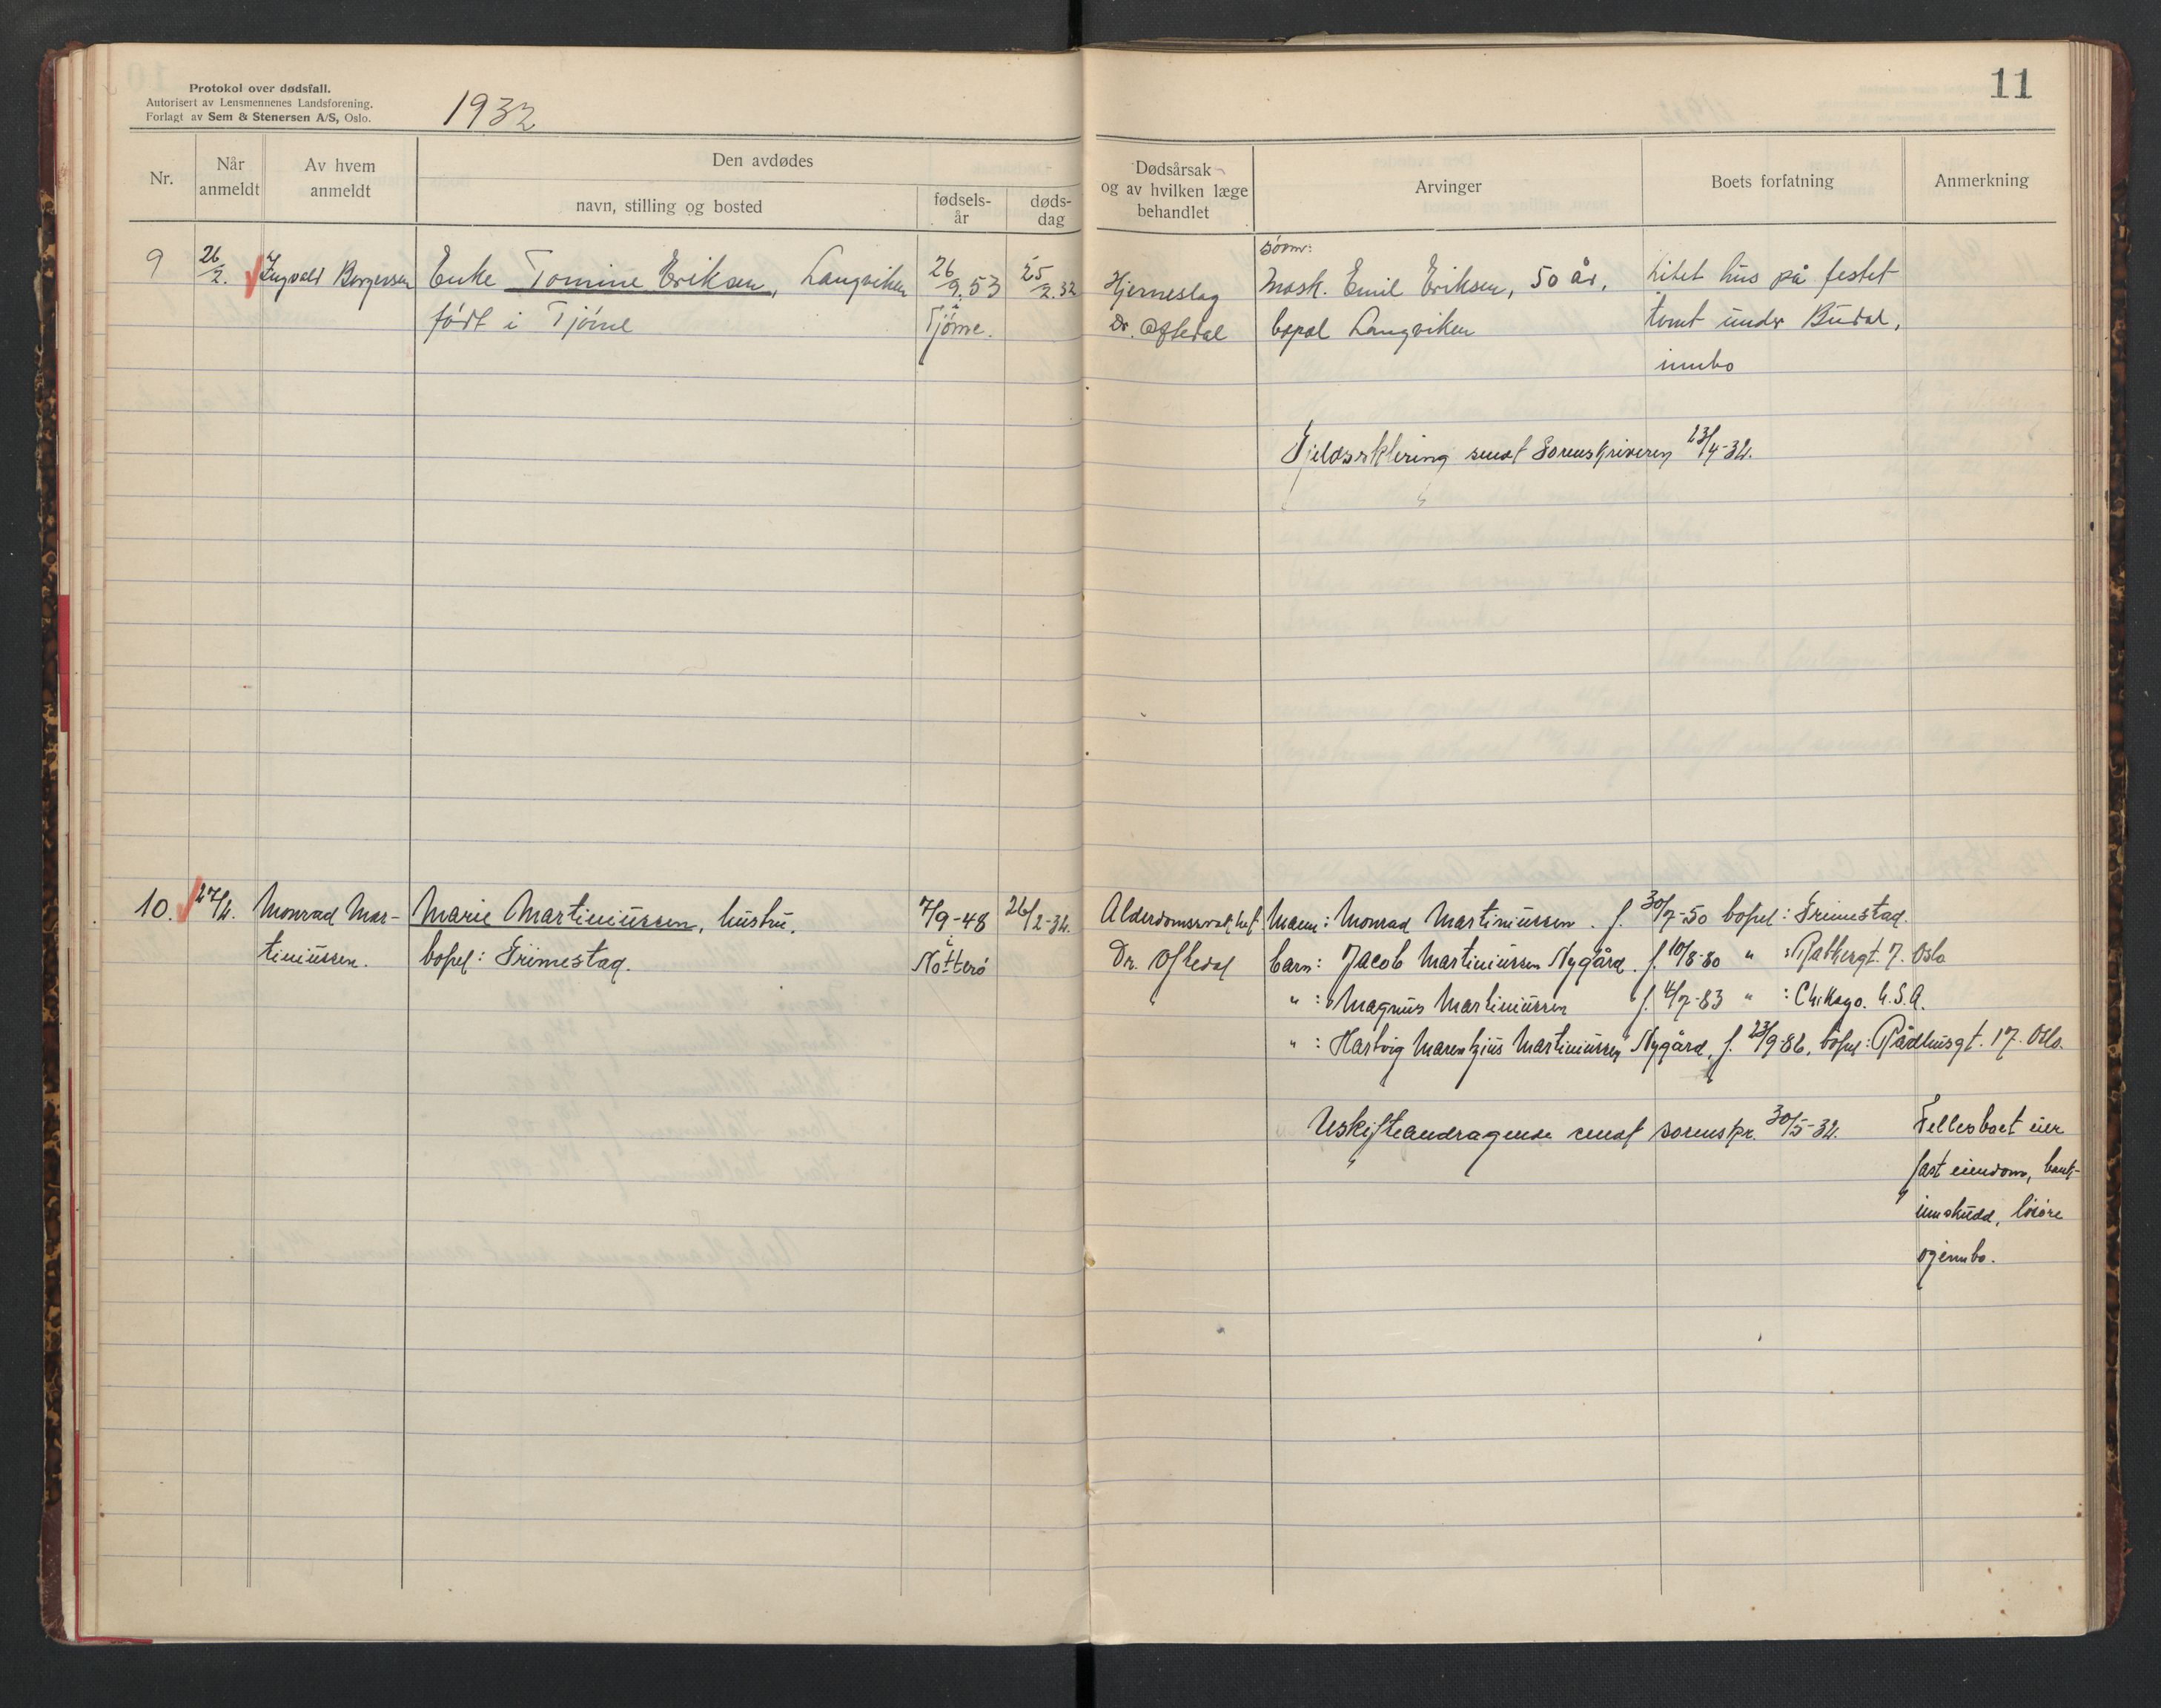 Protokol over dødsfall.
Autorisert av Lensmennenes Landsforening.
Forlagt av Sem & Stenersen A/S, Oslo.
1932
11
Nr.
Når anmeldt
Av hvem anmeldt
Den avdødes
navn, stilling og bosted
fødsels-år
døds-dag
Dødsårsak og av hvilken læge behandlet
Arvinger
Boets forfatning
Anmerkning
9
26/2.
Ingvald Borgersen
Enke Tomine Eriksen, Langviken
født i Tjöme
26/9.53
i
Tjöme.
25/2.32
Hjerneslag
Dr. Oftedal
Sönn:
Mask. Emil Eriksen, 50 år,
bopal Langviken
Litet hus på festet
tomt under Budal,
innbo
Gjeldserklering sendt Sorenskriveren 23/4-32.
10.
27/2.
Monrad Mar-
tiniussen.
Marie Martiniussen, hustru.
bopel: Grimestad.
7/9-48
i
Nötterö
26/2-32.
Alderdomssvakhet
Dr. Oftedal
Mann: Monrad Martiniussen. f. 30/7-50 bopel: Grimestad.
barn: Jacob Martiniussen Nygård. f. 10/8-80 " : 7. Oslo
" : Magnus Martiniussen f. 4/7-83 " : Chikago. U.S.A.
" : Hartvig Marentzius Martiniussen Nygård, f. 23/9-86, bopel: Rådhusgt. 17. Oslo.
Uskifteandragende sendt sorenskr. 30/5-32.
Fellesboet eier
fast eiendom, bank-
innskudd, lösöre
og innbo.